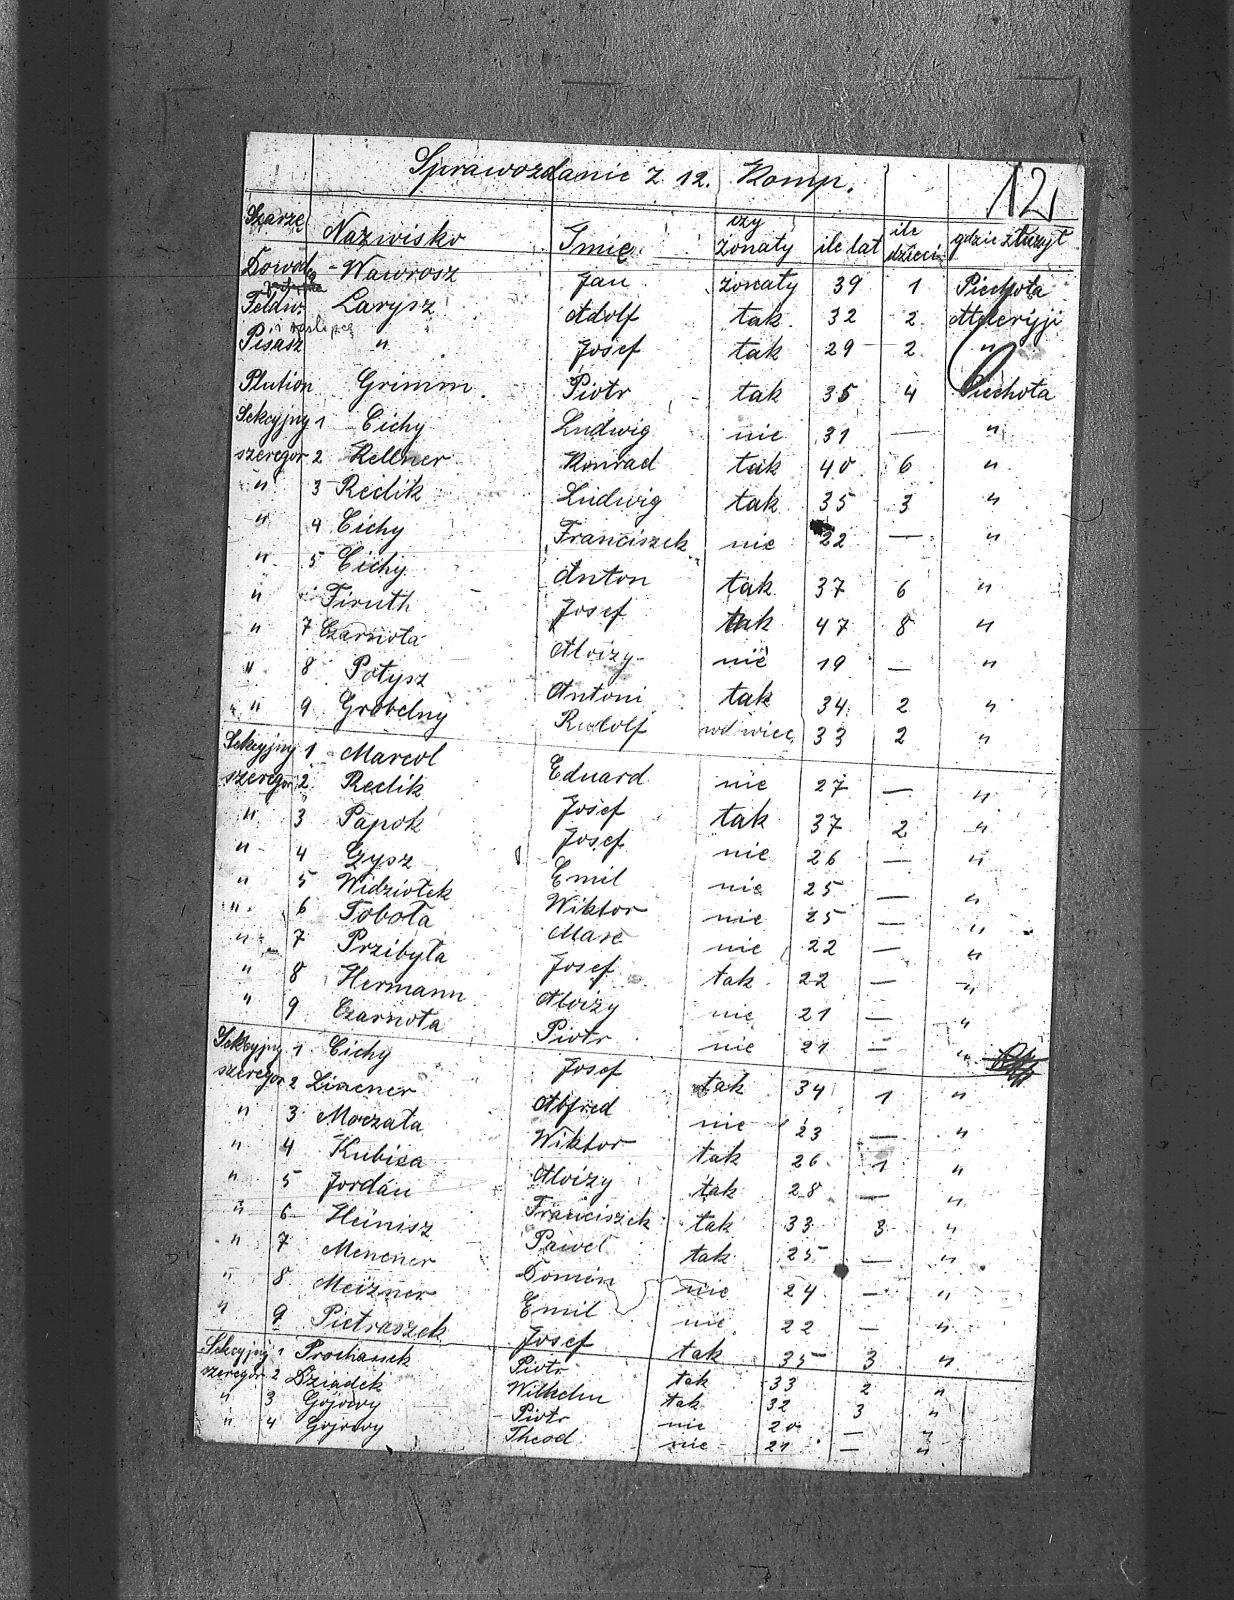 Sprawozdanie z 12. Komp. 12
Szarze Nazwisko Imię czy żonaty ile lat ile dzieci gdzie służył
Dowodc - Wawrosz Jan żonaty 39 1 Piechota
Feldw. Larysz Adolf tak 32 2
Pisasz " Josef tak 29 2 "
Plution Grimm Piotr tak 35 4 Piechota
Sekcyjny 1 Cichy Ludwig nie 31 — "
szeregor 2 Kellner Konrad tak 40 6 "
" 3 Reclik Ludwig tak 35 3 "
" 4 Cichy Franciszek nie 22 — "
" 5 Cichy Anton tak 37 6 "
" Firuth Josef tak 47 8 "
" 7 Czarnota Aloizy nie 19 — "
" 8 Potysz Antoni tak 34 2 "
" 9 Grobelny Rudolf wdwiec 33 2 "
Sekcyjny 1 Marcol Eduard nie 27 — "
szeregor 2 Reclik Josef tak 37 2 "
" 3 Papok Josef nie 26 — "
" 4 Gysz Emil nie 25 — "
" 5 Widziołek Wiktor nie 25 — "
" 6 Toboła Marc nie 22 — "
" 7 Przibyła Josef tak 22 — "
" 8 Hermann Aloizy nie 21 — "
" 9 Czarnota Piotr nie 21 — "
Sekcyjny 1 Cichy Josef tak 34 1 "
szeregor 2 Lincner Alfred nie 23 — "
" 3 Moczała Wiktor tak 26 1 "
" 4 Kubica Aloizy tak 28 — "
" 5 Jordan Franciszek tak 33 3 "
" 6 Heinisz Paweł tak 25 — "
" 7 Mencner Domin nie 24 — "
" 8 Meizner Emil nie 22 — "
" 9 Pietraszek Josef tak 35 3 "
Sekcyjny 1 Piotr tak 33 2 "
szeregor 2 Dziadek Wilhelm tak 32 3 "
" 3 Gojowy Piotr nie 20 — "
" 4 Gojowy Theod nie 21 — "